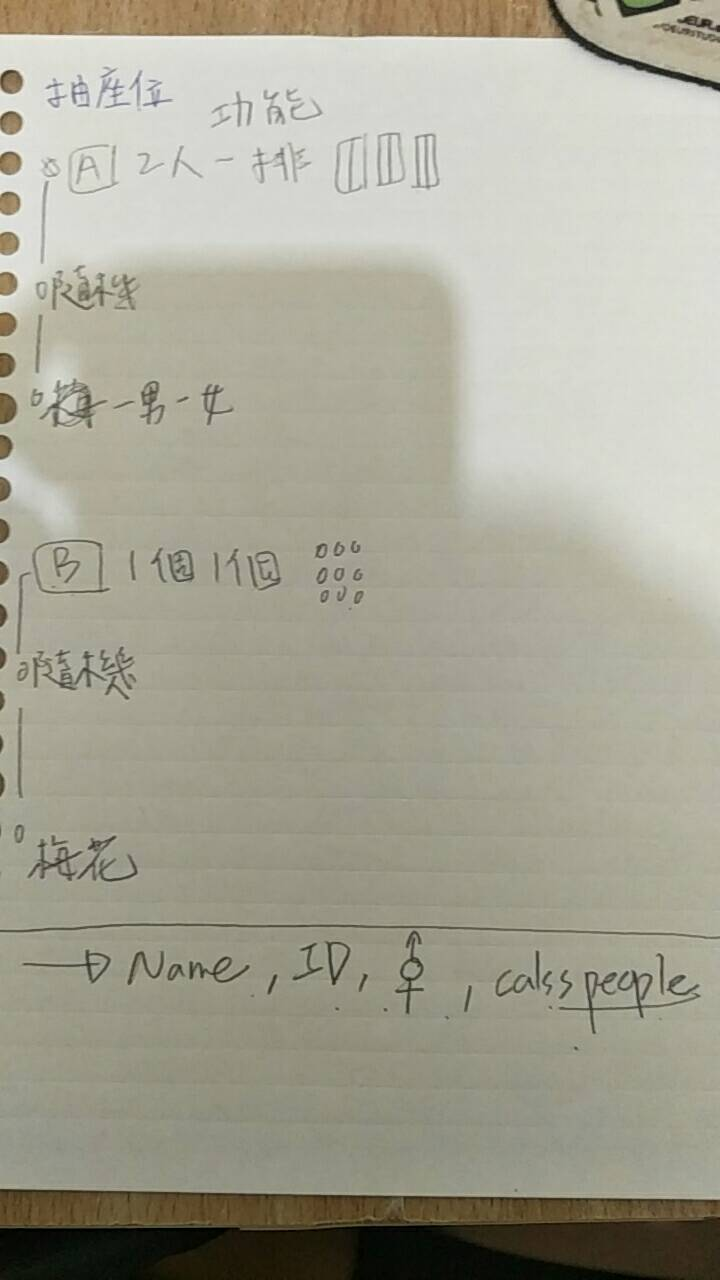 抽座位 功能
A 2人一排
隨機
一男一女
B 1個1個
隨機
梅花
→ Name, ID, ⚦, calss people